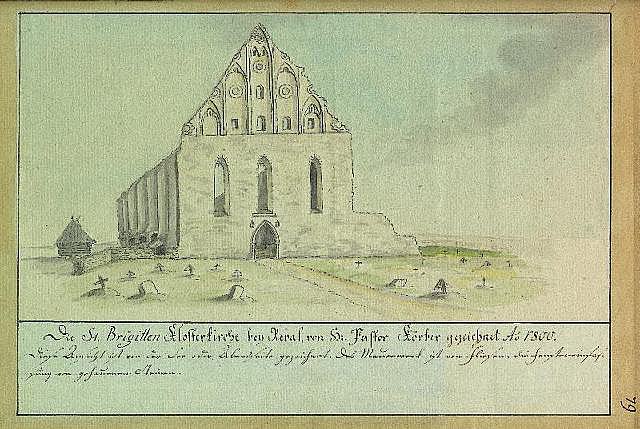 Die St. Brigitten Klosterkirche bey Reval, von Hr. Pastor Körber gezeichnet Ao 1800.
Diese Ansicht ist von der See oder Abendseite gezeichnet. Das Mauerwerk ist von Fliesen, die
von gehauenen Steinen.
79